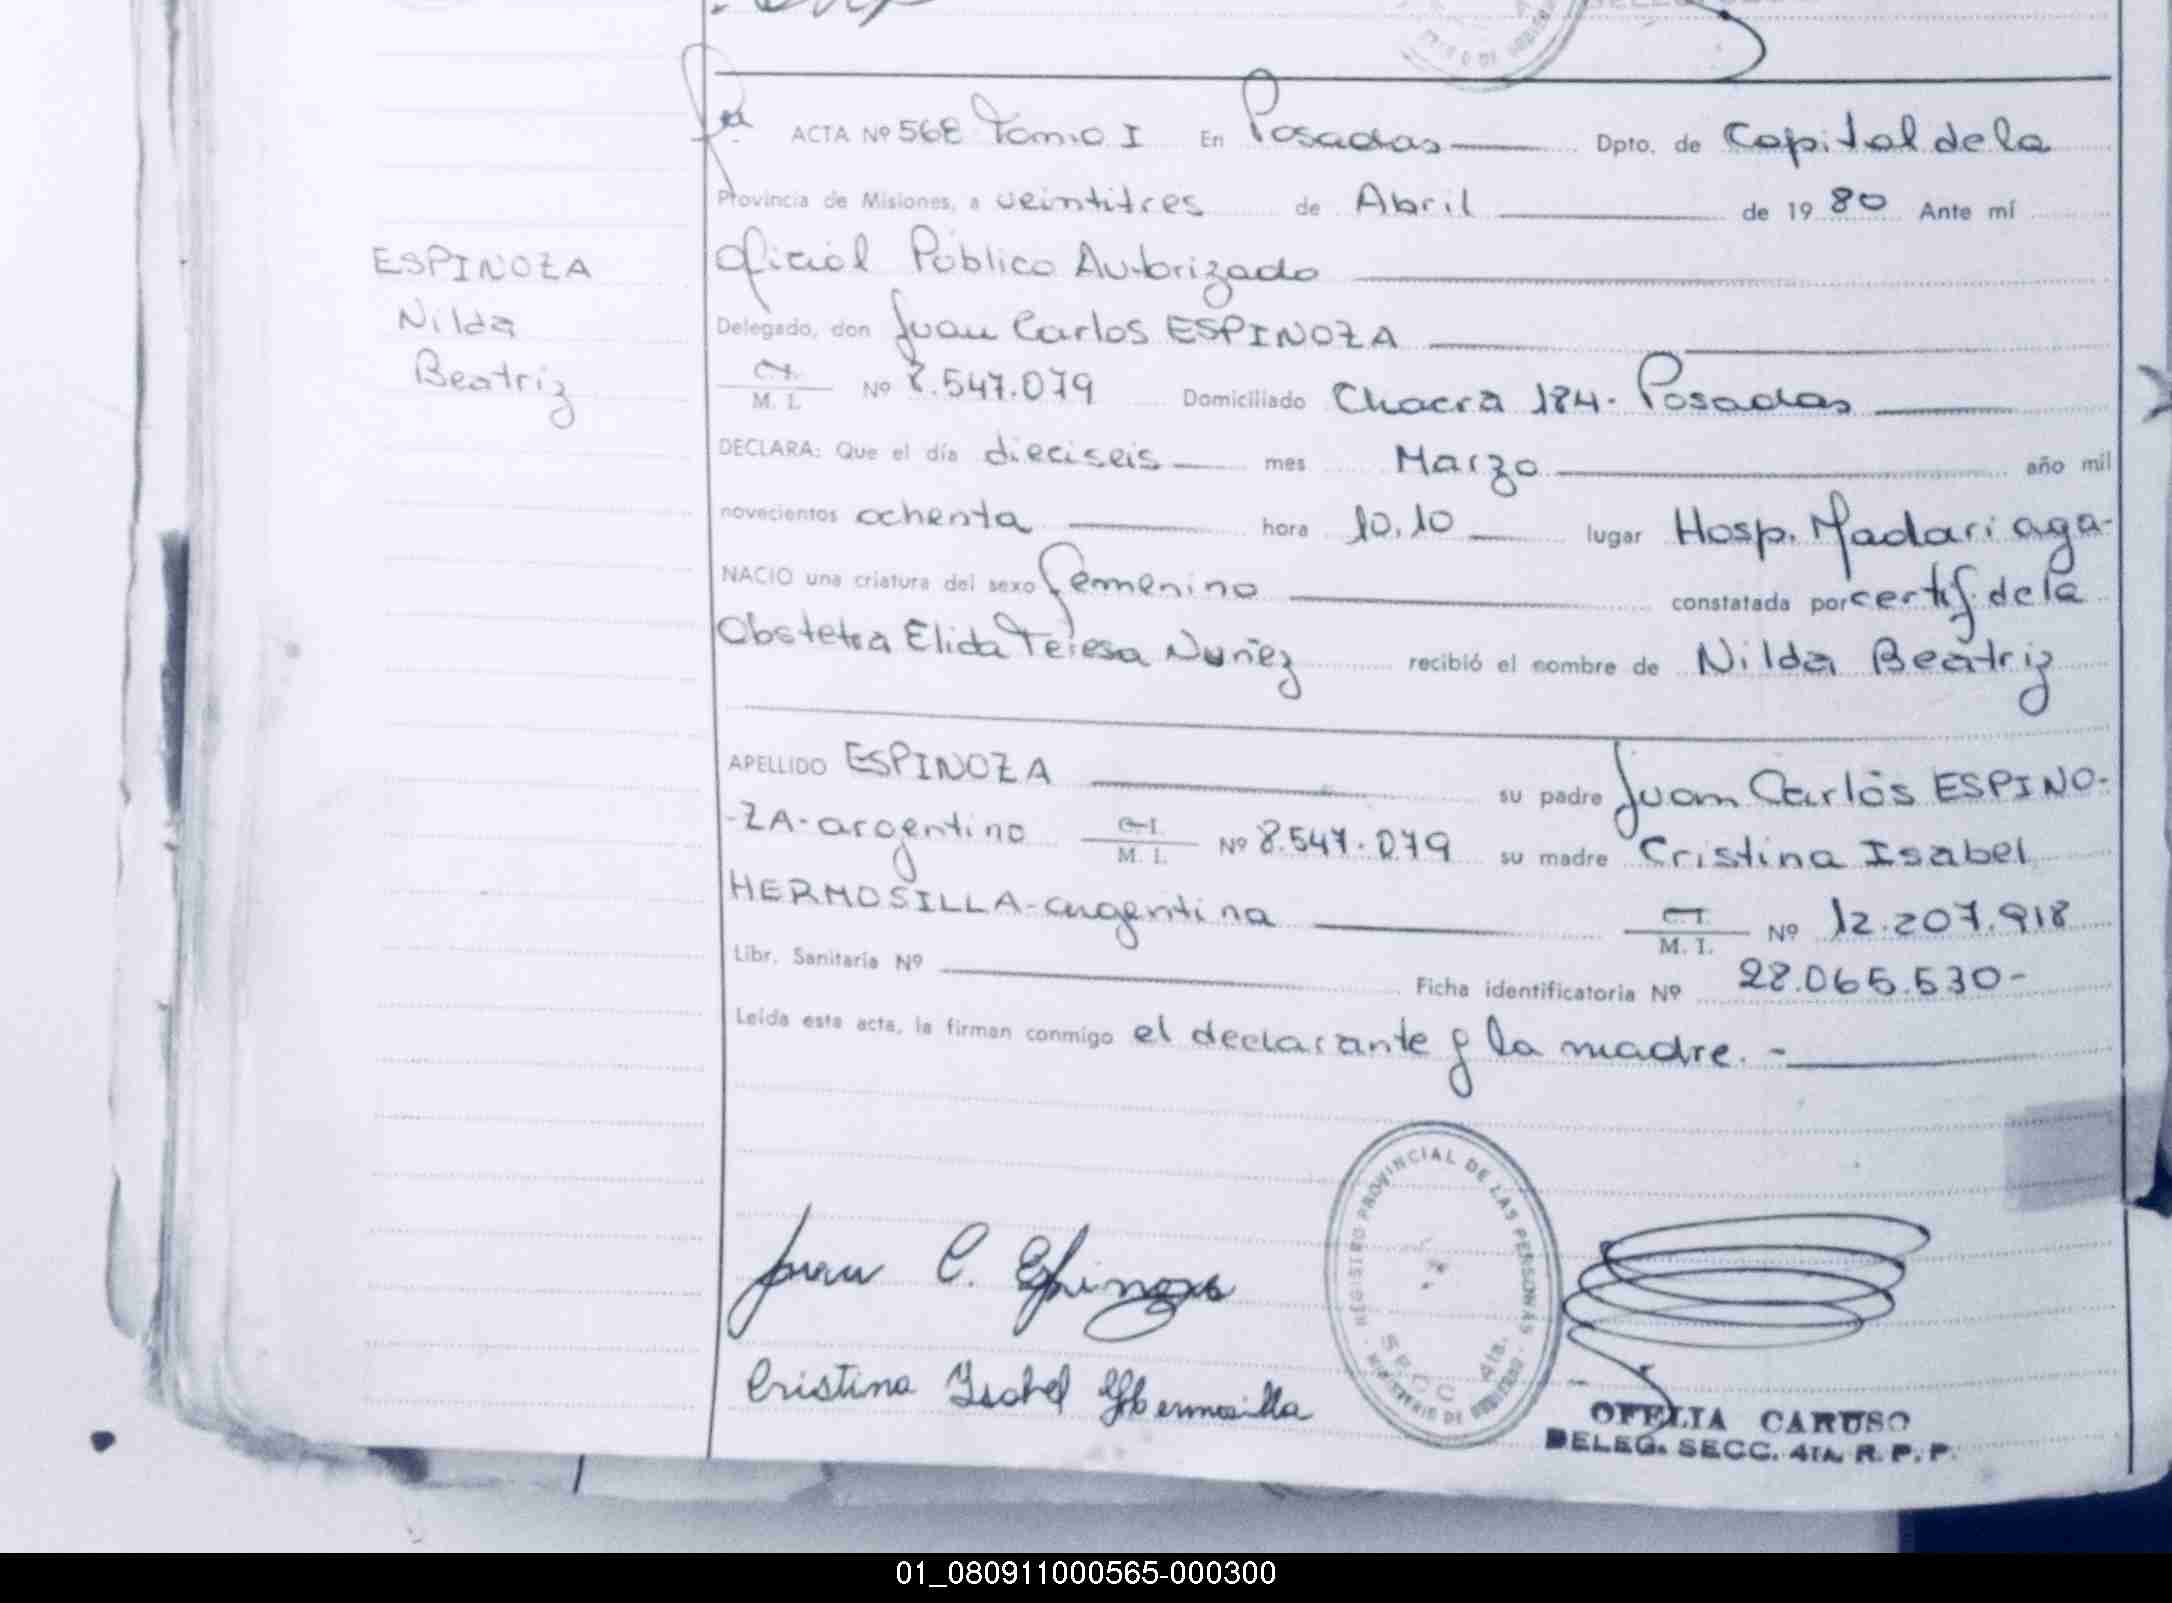 ACTA Nº 568 Tomo I En Posadas Dpto. de Capital de la
Provincia de Misiones, a veintitres de Abril de 19 80 Ante mí
ESPINOZA
Nilda
Beatriz
Oficial Público Autorizado
Delegado, don Juan Carlos ESPINOZA
C.I.
M. I. Nº 8.547.079 Domiciliado Chacra 184. Posadas
DECLARA: Que el día dieciseis mes Marzo año mil
novecientos ochenta hora 10,10 lugar Hosp. Madariaga-
NACIO una criatura del sexo femenino constatada por certif. de la
Obstetra Elida Teresa Nuñez recibió el nombre de Nilda Beatriz
APELLIDO ESPINOZA su padre Juan Carlos ESPINO-
-ZA-argentino C.I. M. I. Nº 8.547.079 su madre Cristina Isabel
HERMOSILLA-argentina C.I. M. I. Nº 12.207.918
Libr. Sanitaria Nº Ficha identificatoria Nº 28.065.530-
Leída esta acta, la firman conmigo el declarante y la madre.-
Juan C. Espinoza
Cristina Isabel Hermosilla
REGISTRO PROVINCIAL DE LAS PERSONAS
SECC. 4ta.
OFELIA CARUSO
DELEG. SECC. 4TA. R. P. P.
01_080911000565-000300